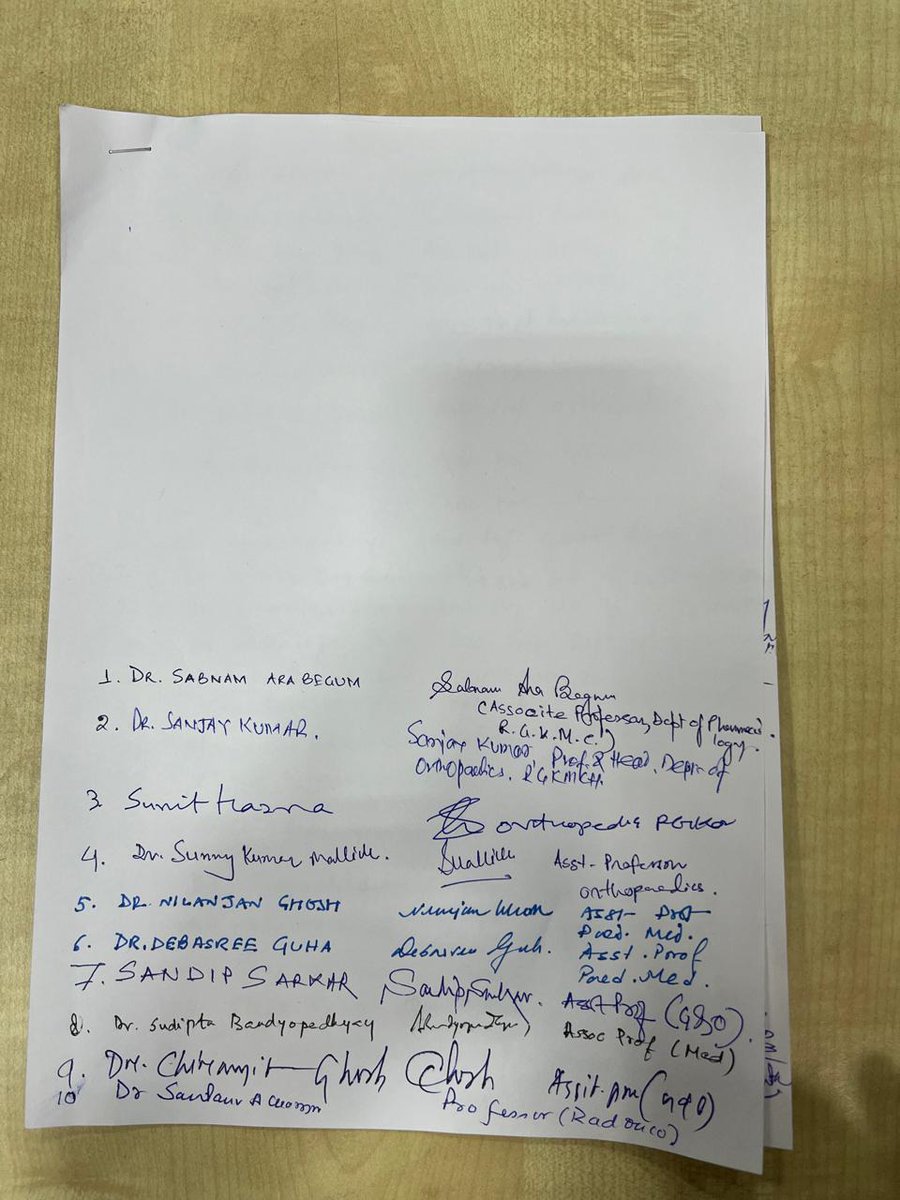 1. DR. SABNAM ARA BEGUM Sabnam Ara Begum
(Associte Professor, Dept of Pharmaco
R.G.K.M.C.) logy.
2. DR. SANJAY KUMAR. Sanjay Kumar Prof. & Head, Deptt of
Orthopaedics. RGKMCH.
3. Sumit Hazra Orthopedic RGKar
4. Dr. Sunny Kumar Mallick. SMallick Asst-Professor
Orthopaedics.
5. DR. NILANJAN GHOSH Nilanjan Ghosh Asst- Prof
Paed. Med.
6. DR. DEBASREE GUHA Debasree Guh. Asst. Prof
Paed. Med.
7. SANDIP SARKAR Sandip Sarkar. Asst Prof (G&O).
8. Dr. Sudipta Bandyopadhyay Assoc Prof (Med)
9. Dr. Chiranjit Ghosh CGhosh Assit. (G&O)
10 Dr Professor (Radio